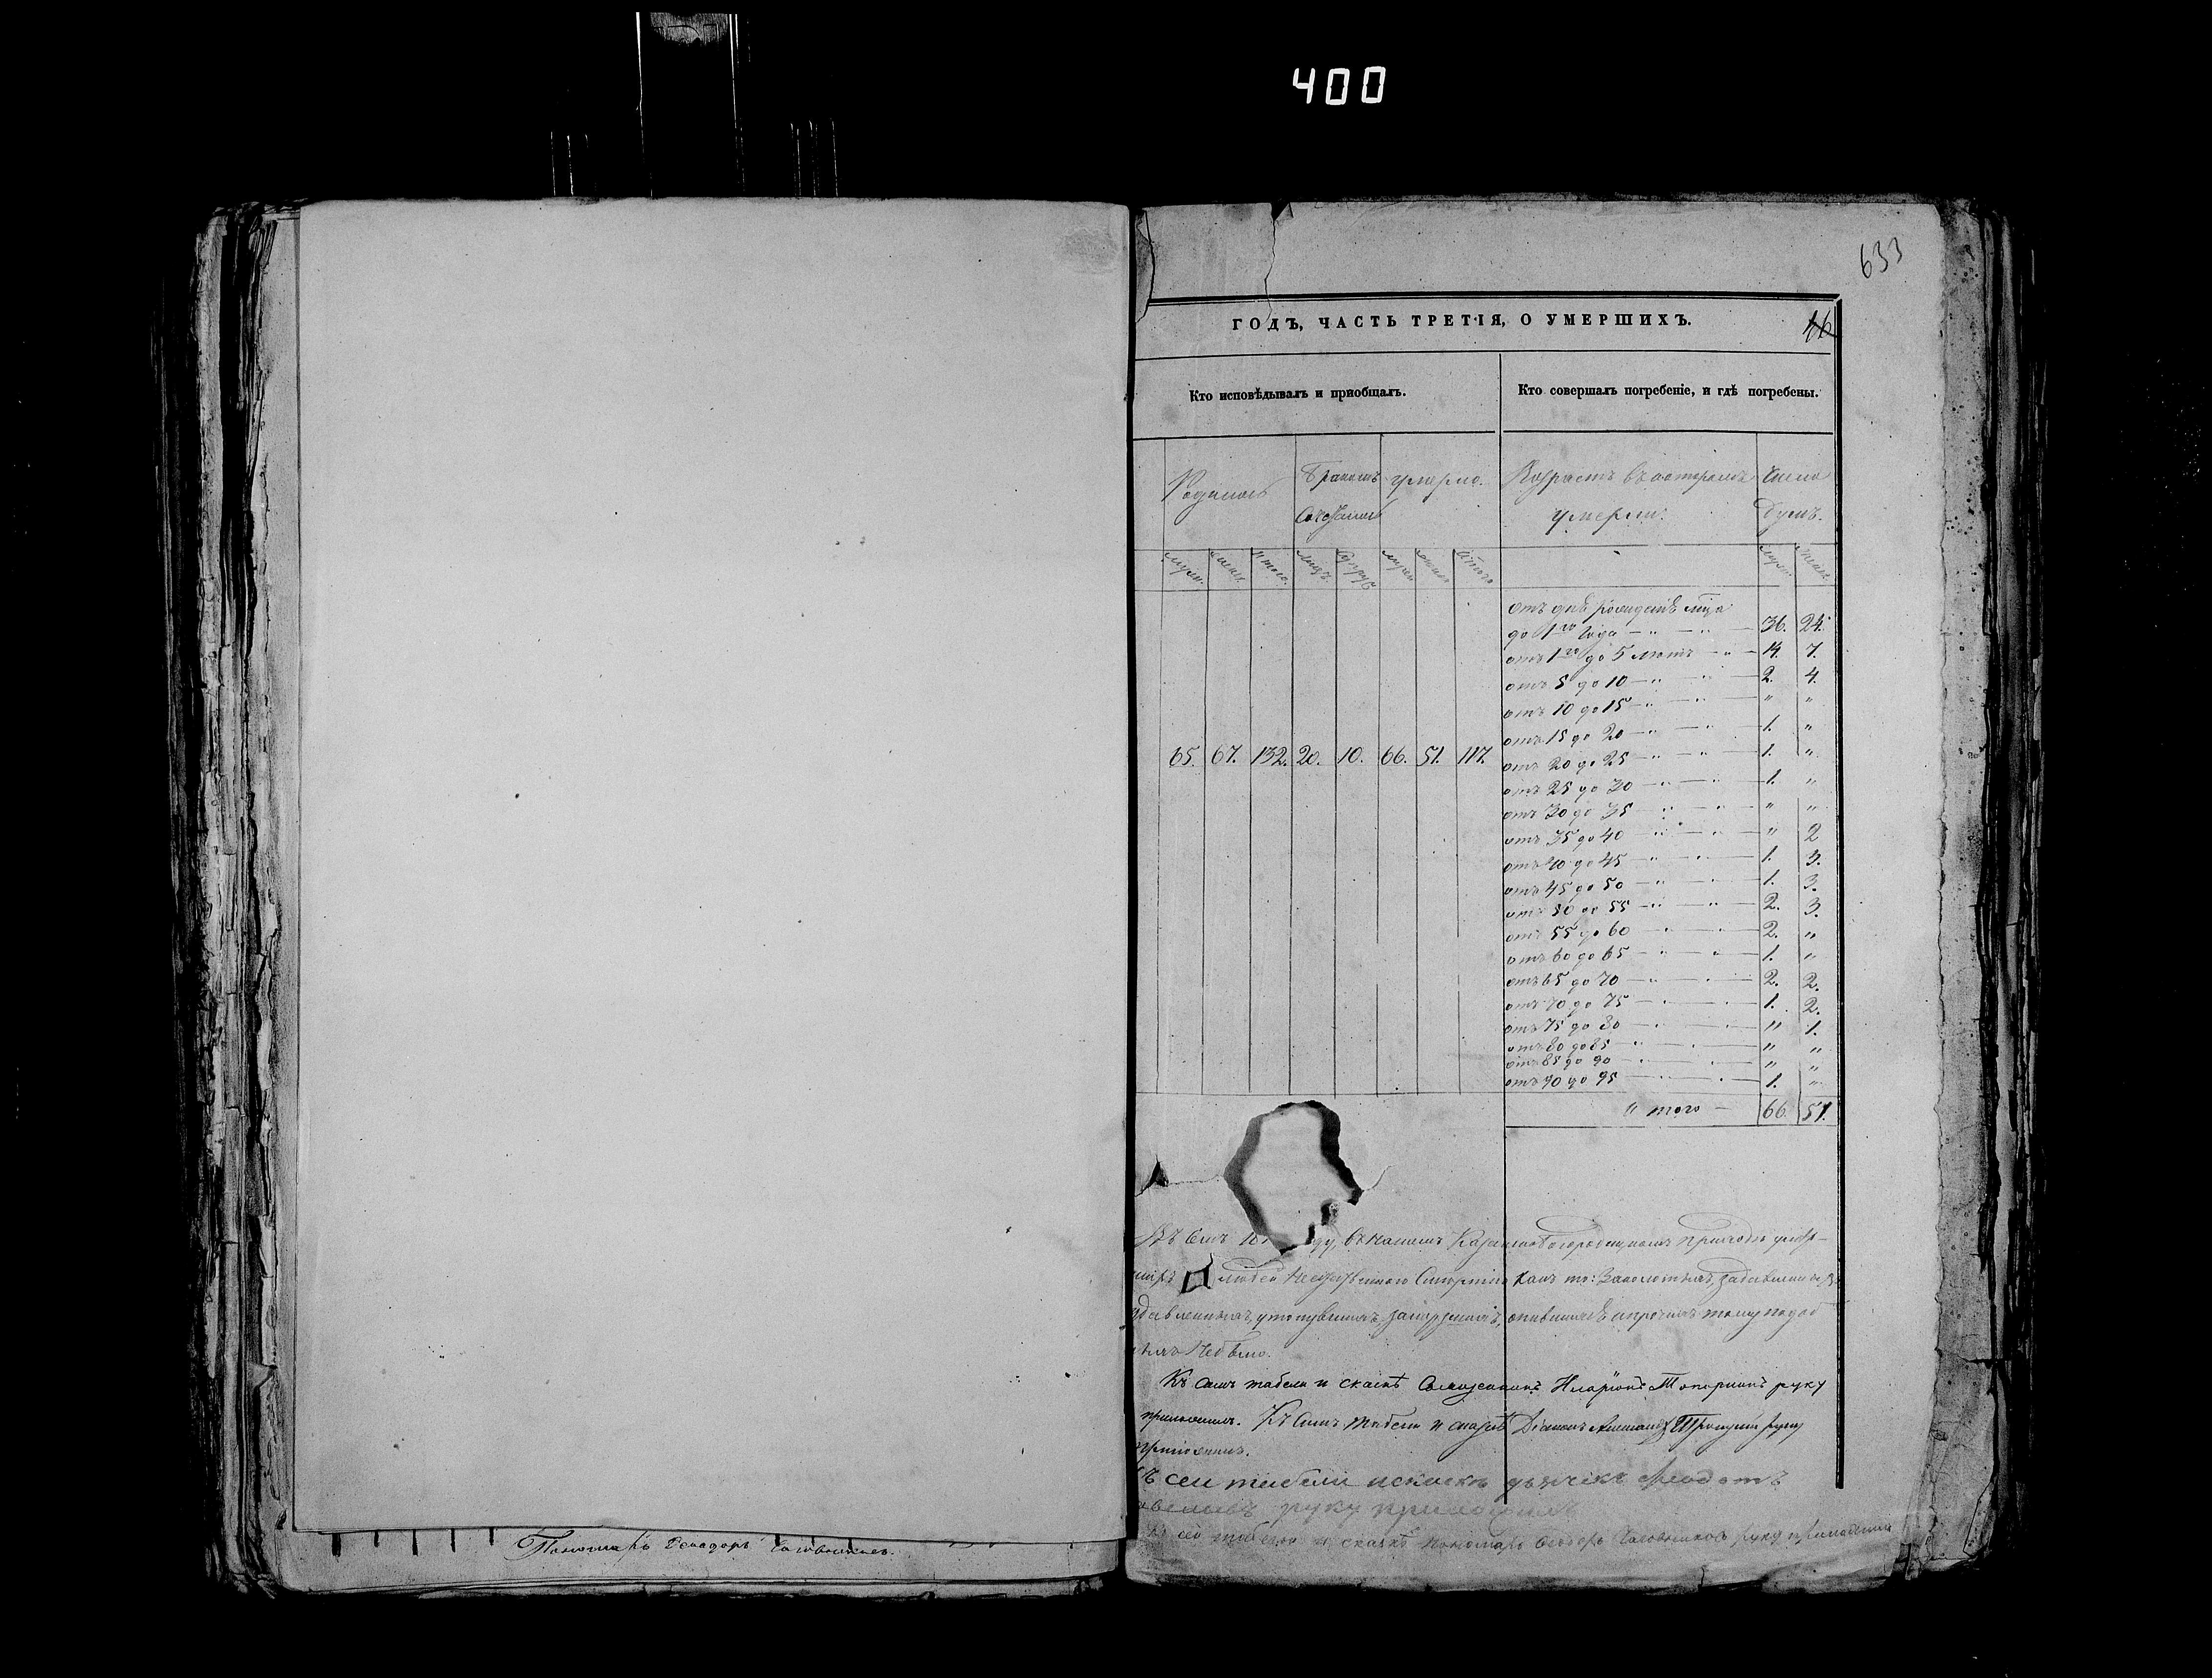 400
633
ГОДЪ, ЧАСТЬ ТРЕТІЯ, О УМЕРШИХЪ.
46
Кто исповѣдывалъ и приобщалъ.
Кто совершалъ погребеніе, и гдѣ погребены.
Родилось
Бракомъ
умерло.
Возрастъ въ которомъ
Число
умерли:
душъ.
муж. женс. Итого. лицъ. супруг муж женс Итого
муж. женс.
отъ дня рожденія
до 1го года — " — " — 36. 24.
отъ 1го до 5 лѣтъ — " — 14. 7.
отъ 5 до 10 — " — 2. 4.
отъ 10 до 15 — " — " "
отъ 15 до 20 — " — 1. "
65. 67. 132. 20. 10. 66. 51. 117.
отъ 20 до 25 — " — 1. "
отъ 25 до 30 — " — 1. "
отъ 30 до 35 — " — " "
отъ 35 до 40 — " — " 2
отъ 40 до 45 — " — 1. 3.
отъ 45 до 50 — " — 1. 3.
отъ 50 до 55 — " — 2. 3.
отъ 55 до 60 — " — 2. "
отъ 60 до 65 — " — 1. "
отъ 65 до 70 — " — 2. 2.
отъ 70 до 75 — " — 1. 2.
отъ 75 до 80 — " — " 1.
отъ 80 до 85 — " — " "
отъ 85 до 90 — " — " "
отъ 90 до 95 — " — 1. "
Итого — 66. 51.
Въ семъ году, въ нашемъ приходѣ умер-
людей смертію какъ то:
утонувшихъ, опившихся и прочихъ тому подоб
Небыло.
Къ симъ табели и сказкѣ Священникъ Иларіонъ Топоркинъ руку
приложилъ. Къ симъ табели и сказкѣ Діаконъ Троицкій руку
приложилъ.
сеи табели искаске дьячекъ Феодотъ
руку приложилъ
сей табели и сказкѣ пономарь Часовниковъ руку приложилъ
Пономарь Часовниковъ.